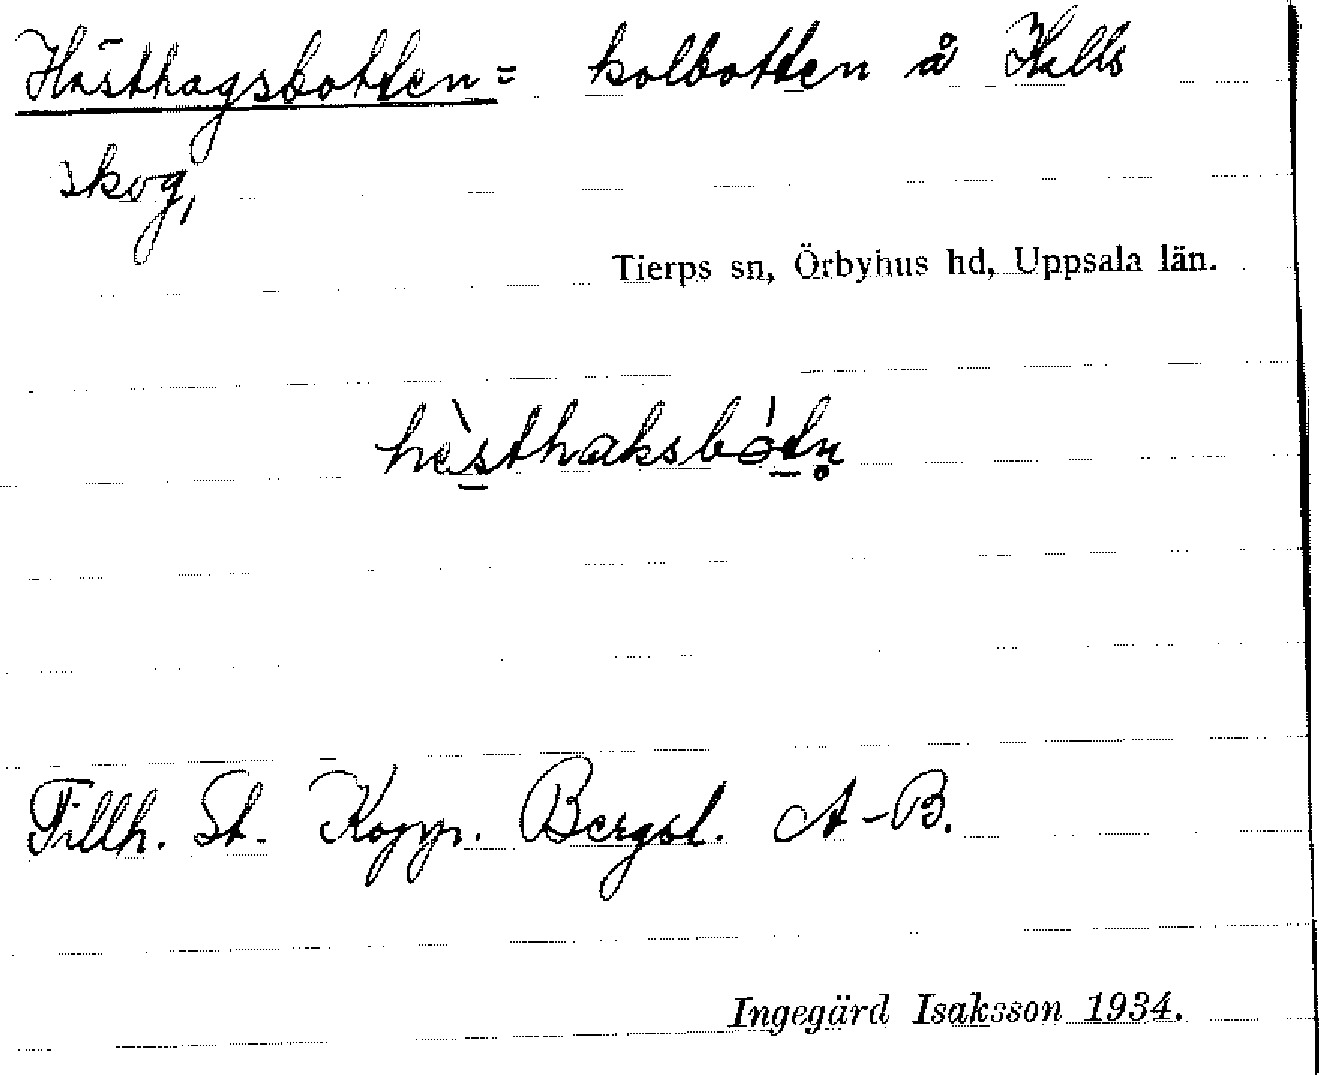 Hästhagsbotten = kolbotten å Halls
skog,
Tierps sn, Örbyhus hd, Uppsala län.
hèsthaksbótn̥
Tillh. St. Kopp. Bergsl. A-B.
Ingegärd Isaksson 1934.